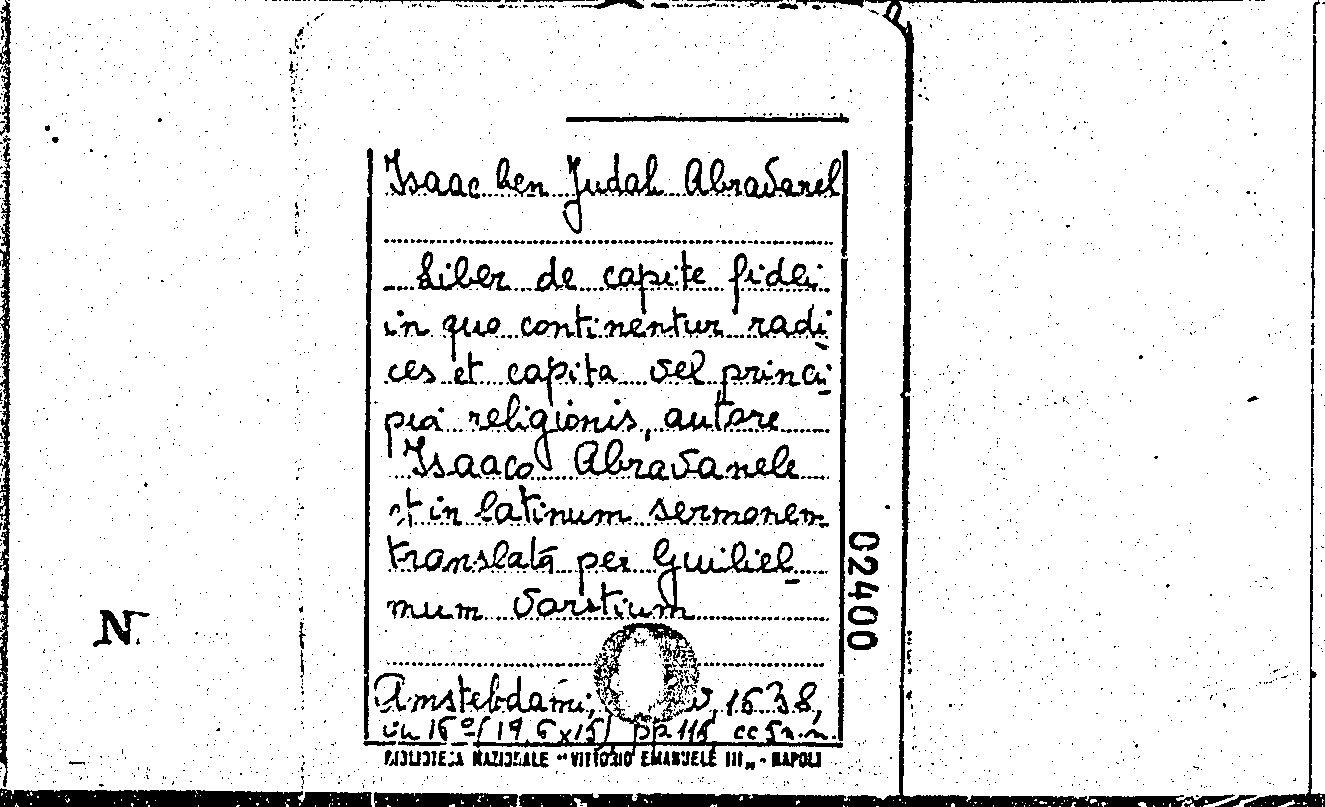 Isaac ben Judah Abravanel
Liber de capite fidei
in quo continentur radi
ces et capita vel princi
pia religionis, autore
Isaaco Abravanele
et in latinum sermonem
translata per Guiliel
mum Vorstium
Amstelodami, 1638,
in 16° (19,6x15) pp 115 cc 5 n.n.
BIBLIOTECA NAZIONALE "VITTORIO EMANUELE III„ - NAPOLI
02400
N